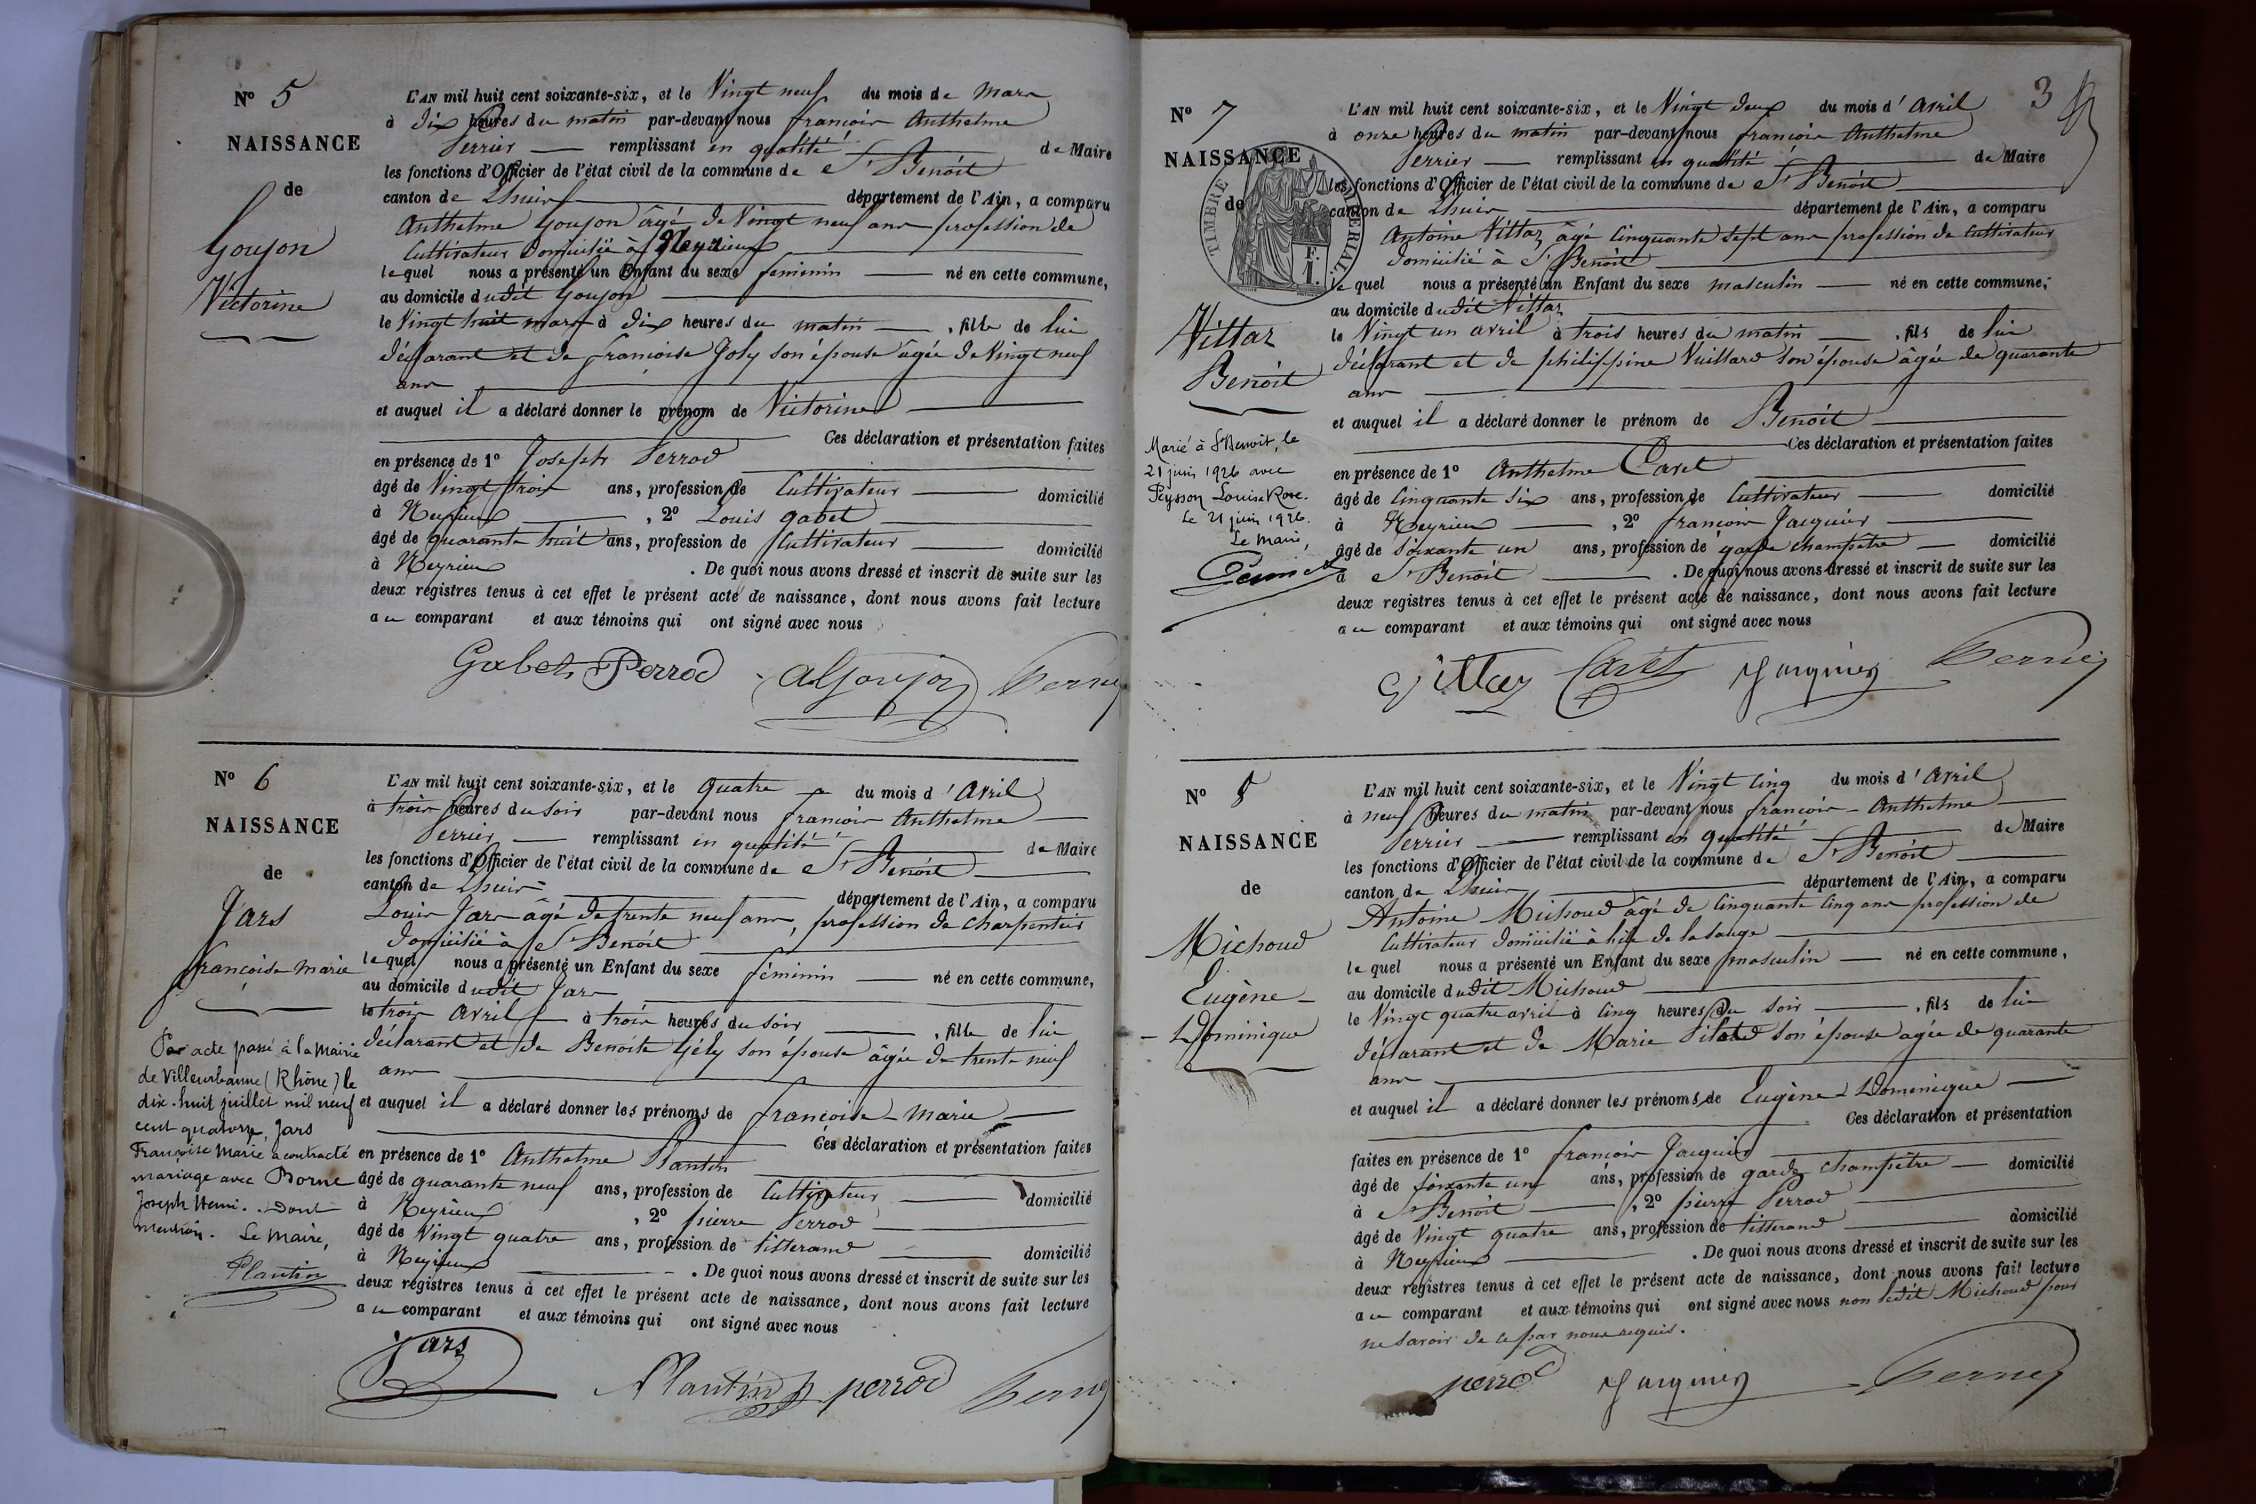 N° 5
NAISSANCE
de
Goujon
Victorine
L'AN mil huit cent soixante-six, et le Vingt neuf du mois de mars
à dix heures du matin par-devant nous françois Anthelme
Perrier remplissant en qualité de Maire
les fonctions d'Officier de l'état civil de la commune de St Benoit
canton de Lhuis département de l'Ain, a comparu
Anthelme Goujon âgé de Vingt neuf ans profession de
Cultivateur Domicilié à Neyrieux
lequel nous a présenté un Enfant du sexe féminin né en cette commune,
au domicile dudit Goujon
le Vingt huit mars à dix heures du matin , fille de lui
déclarant et de françoise Joly son épouse âgée de Vingt neuf
ans
et auquel il a déclaré donner le prénom de Victorine
Ces déclaration et présentation faites
en présence de 1° Joseph Perrod
âgé de Vingt trois ans, profession de Cultivateur domicilié
à Neyrieux , 2° Louis gabet
âgé de quarante huit ans, profession de Cultivateur domicilié
à Neyrieux . De quoi nous avons dressé et inscrit de suite sur les
deux registres tenus à cet effet le présent acte de naissance, dont nous avons fait lecture
au comparant et aux témoins qui ont signé avec nous
Gabet Perrod A Goujon
N° 6
NAISSANCE
de
Jars
françoise marie
Par acte passé à la Mairie
de Villeurbanne (Rhône) le
dix-huit juillet mil neuf
cent quatorze, Jars
Françoise Marie a contracté
mariage avec Borne
Joseph Henri. Dont
mention. Le Maire,
Plantin
L'AN mil huit cent soixante-six, et le quatre du mois d'Avril
à trois heures du soir par-devant nous françois Anthelme
Perrier remplissant en qualité de Maire
les fonctions d'Officier de l'état civil de la commune de St Benoit
canton de Lhuis département de l'Ain, a comparu
Louis Jars âgé de trente neuf ans, profession de Charpentier
domicilié à St Benoit
lequel nous a présenté un Enfant du sexe féminin né en cette commune,
au domicile dudit Jars
le trois Avril à trois heures du soir , fille de lui
déclarant et de Benoite Gély son épouse âgée de trente neuf
ans
et auquel il a déclaré donner les prénoms de françoise marie
Ces déclaration et présentation faites
en présence de 1° Anthelme Plantin
âgé de quarante neuf ans, profession de Cultivateur domicilié
à Neyrieux , 2° pierre Perrod
âgé de Vingt quatre ans, profession de tisserand domicilié
à Neyrieux . De quoi nous avons dressé et inscrit de suite sur les
deux registres tenus à cet effet le présent acte de naissance, dont nous avons fait lecture
au comparant et aux témoins qui ont signé avec nous
Jars
Plantin perrod
3
N° 7
NAISSANCE
de
TIMBRE IMPÉRIAL
F.
1.
Vittaz
Benoit
Marié à St Benoit, le
21 juin 1926 avec
Peysson Louise Rose.
Le 21 juin 1926.
Le Maire,
L'AN mil huit cent soixante-six, et le Vingt deux du mois d'Avril
à onze heures du matin par-devant nous françois Anthelme
Perrier remplissant en qualité de Maire
les fonctions d'Officier de l'état civil de la commune de St Benoit
canton de Lhuis département de l'Ain, a comparu
Antoine Vittaz âgé Cinquante sept ans profession de Cultivateur
domicilié à St Benoit
lequel nous a présenté un Enfant du sexe masculin né en cette commune,
au domicile dudit Vittaz
le Vingt un avril à trois heures du matin , fils de lui
déclarant et de philippine Vuillard son épouse âgée de quarante
ans
et auquel il a déclaré donner le prénom de Benoit
Ces déclaration et présentation faites
en présence de 1° Anthelme Caret
âgé de Cinquante six ans, profession de Cultivateur domicilié
à Neyrieux , 2° françois Jacquier
âgé de soixante un ans, profession de garde champêtre domicilié
à St Benoit . De quoi nous avons dressé et inscrit de suite sur les
deux registres tenus à cet effet le présent acte de naissance, dont nous avons fait lecture
au comparant et aux témoins qui ont signé avec nous
Vittaz Caret Jacquier
N° 8
NAISSANCE
de
Michoud
Eugène
Dominique
L'AN mil huit cent soixante-six, et le Vingt Cinq du mois d'Avril
à neuf heures du matin par-devant nous françois Anthelme
Perrier remplissant en qualité de Maire
les fonctions d'Officier de l'état civil de la commune de St Benoit
canton de Lhuis département de l'Ain, a comparu
Antoine Michoud âgé de Cinquante Cinq ans profession de
Cultivateur domicilié à l'ile de la sauge
lequel nous a présenté un Enfant du sexe masculin né en cette commune,
au domicile dudit Michoud
le Vingt quatre avril à Cinq heures du soir , fils de lui
déclarant et de Marie Pilard son épouse agée de quarante
ans
et auquel il a déclaré donner les prénoms de Eugène Dominique
Ces déclaration et présentation
faites en présence de 1° françois Jacquier
âgé de soixante un ans, profession de garde champêtre domicilié
à St Benoit , 2° pierre Perrod
âgé de Vingt quatre ans, profession de tisserand domicilié
à Neyrieux . De quoi nous avons dressé et inscrit de suite sur les
deux registres tenus à cet effet le présent acte de naissance, dont nous avons fait lecture
au comparant et aux témoins qui ont signé avec nous non ledit Michoud pour
ne savoir de ce par nous requis.
perrod Jacquier